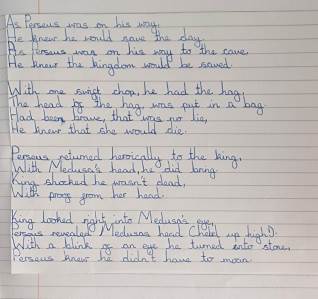 As Perseus was on his way,
He knew he would save the day.
As Perseus was on his way to the cave,
He knew the kingdom would be saved.

With one swift chop, he had the hag,
The head of the hag, was put in a bag.
Had been brave, that was no lie,
He knew that she would die.

Perseus returned heroically to the king,
With Medusa's head, he did bring.
King shocked he wasn't dead,
With proof from her head.

King looked right into Medusa's eye,
Perseus revealed Medusas head (held up high).
With a blink of an eye he turned into stone,
Perseus knew he didn't have to moan.